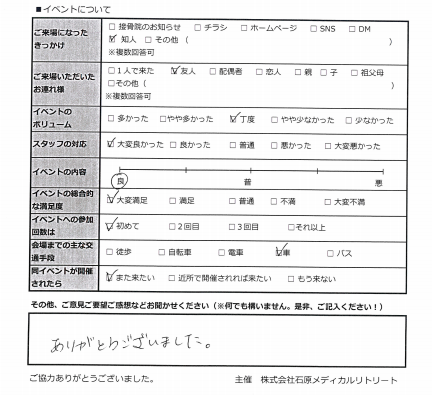 ■イベントについて
ご来場になった
きっかけ
□ 接骨院のお知らせ □ チラシ □ ホームページ □ SNS □ DM
☑ 知人 □ その他（ ）
※複数回答可
ご来場いただいた
お連れ様
□ 1人で来た ☑友人 □ 配偶者 □ 恋人 □ 親 □ 子 □ 祖父母
□その他（ ）
※複数回答可
イベントの
ボリューム
□ 多かった □やや多かった ☑丁度 □ やや少なかった □ 少なかった
スタッフの対応
☑ 大変良かった □ 良かった □ 普通 □ 悪かった □ 大変悪かった
イベントの内容
良 普 悪
イベントの総合的
な満足度
☑ 大変満足 □ 満足 □ 普通 □ 不満 □ 大変不満
イベントへの参加
回数は
☑初めて □２回目 □３回目 □それ以上
会場までの主な交
通手段
□ 徒歩 □ 自転車 □ 電車 ☑車 □ バス
同イベントが開催
されたら
☑ また来たい □ 近所で開催されれば来たい □ もう来ない
その他、ご意見ご要望ご感想などお聞かせください（※何でも構いません。是非、ご記入ください！）
ありがとうございました。
ご協力ありがとうございました。 主催 株式会社石原メディカルリトリート